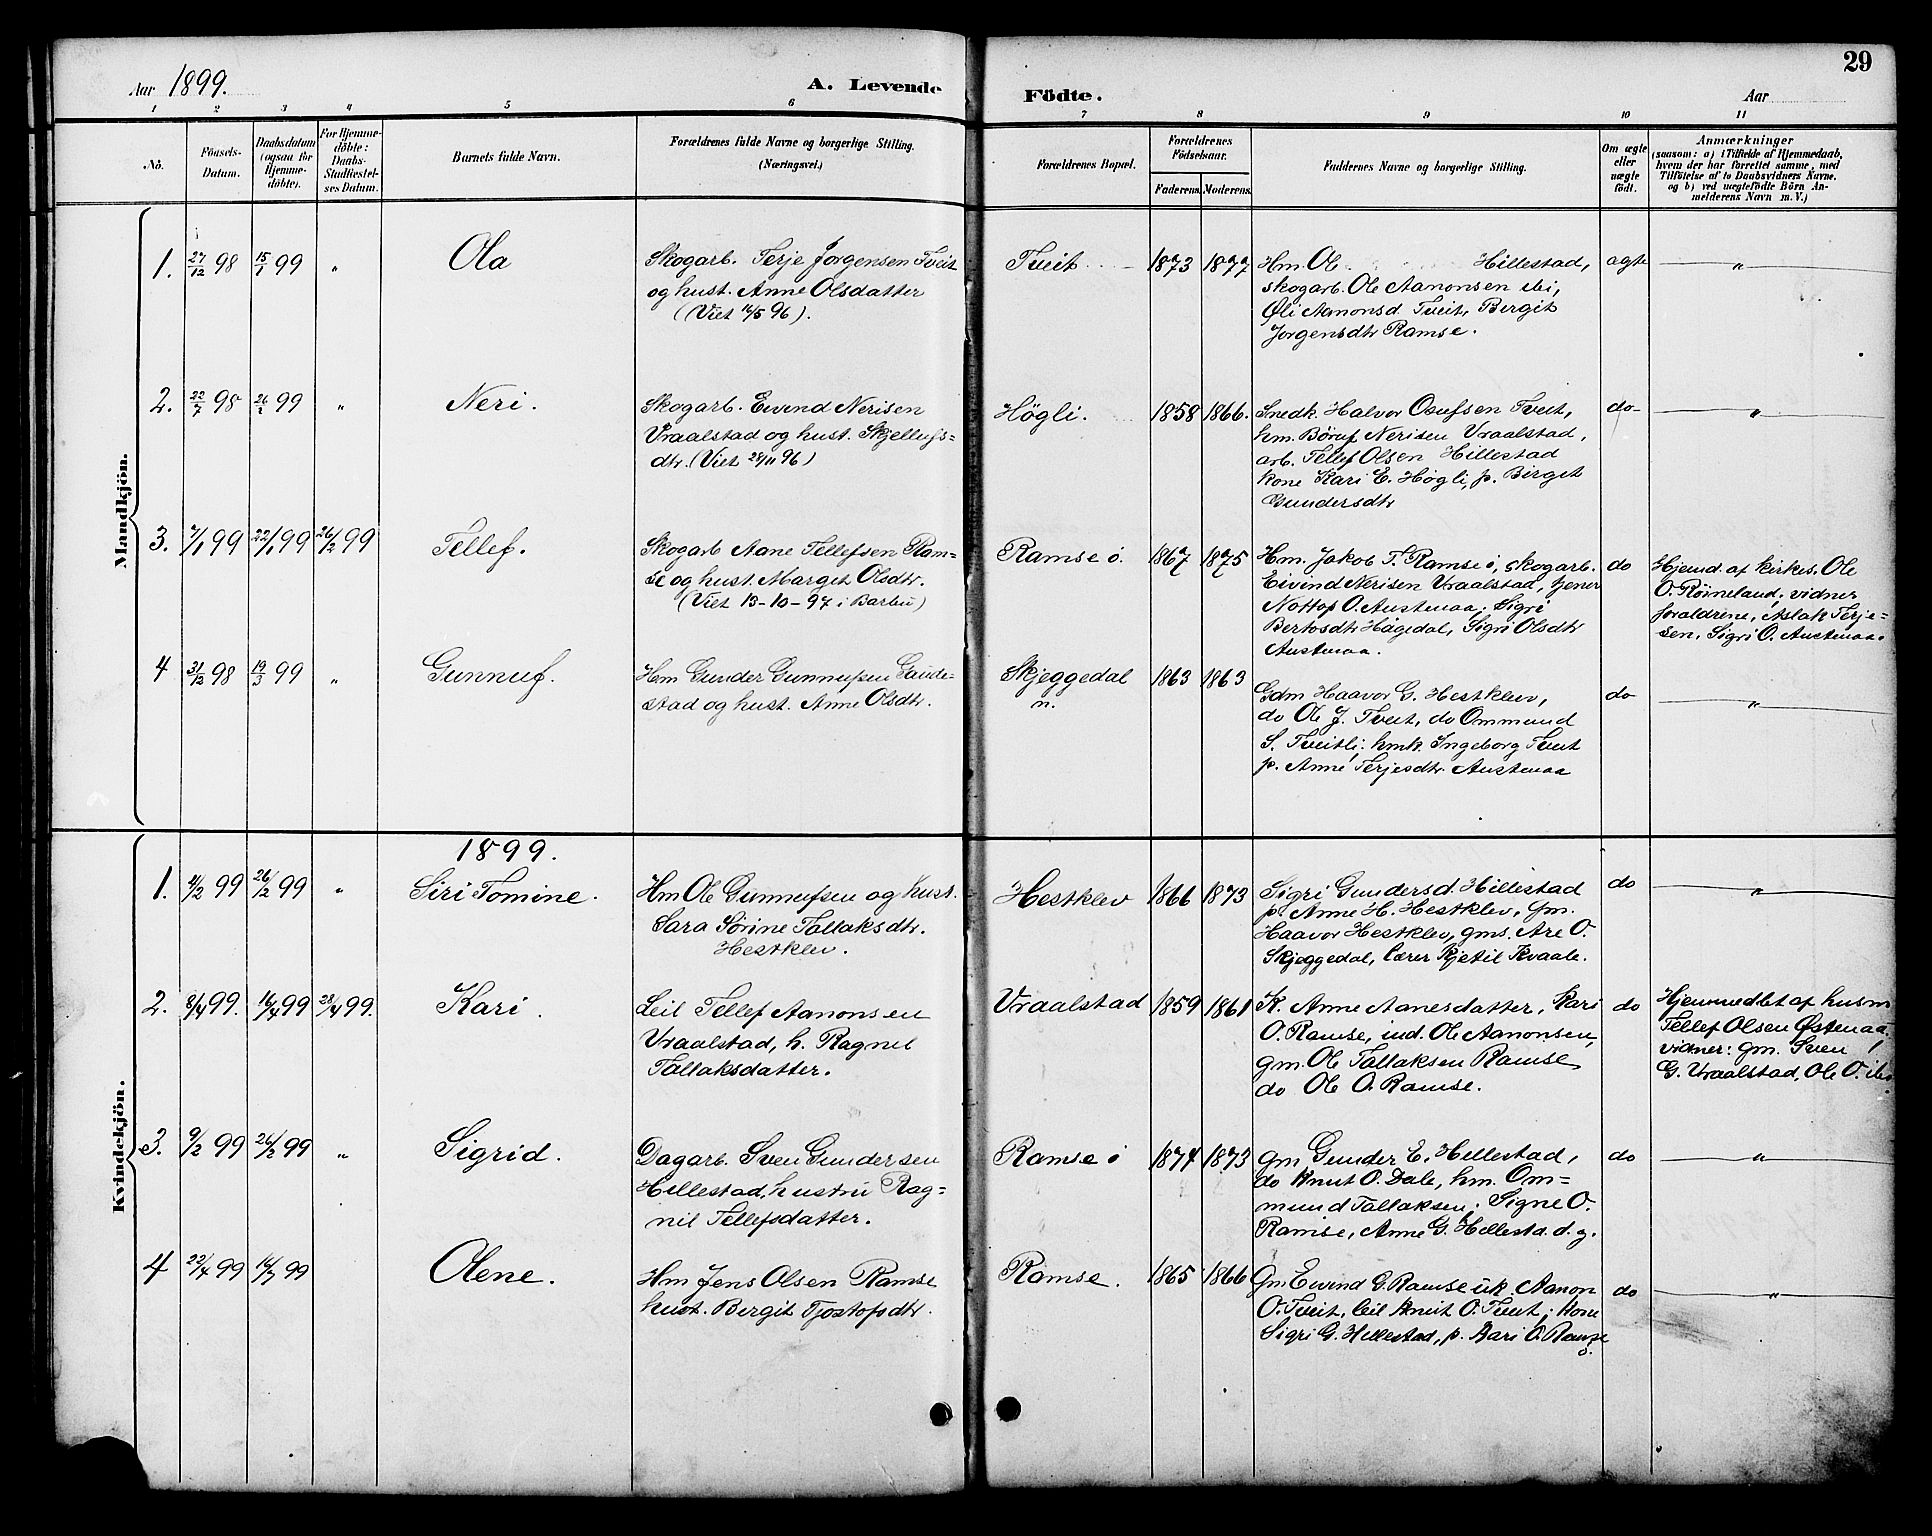 29
Aar 1899.
A. Levende Födte.
Aar
1 2 3 4 5 6 7 8 9 10 11
No.
Föasels-
Datum.
Daabsdatum
(ogsaa for
Hjemme-
döbte).
For Hjemme-
döbte:
Daabs-
Stadfæstel-
ses Datum.
Barnets fulde Navn.
Forældrenes fulde Navne og borgerlige Stilling.
(Næringsvei.)
Forældrenes Bopæl.
Forældrenes
Födselsaar.
Faderens. Moderens.
Faddernes Navne og borgerlige Stilling.
Om ægte
eller
uægte
födt.
Anmærkninger
(saasom: a) i Tilfælde af Hjemmedaab,
hvem der har forrettet samme, med
Tilföielse af to Daabsvidners Navne.
og b) ved uægtefödte Börn An-
melderens Navn m. V.)
Mandkjön.
1. 27/12 98 15/1 99 " Ola
Skogarb. Terje Jörgensen Tveit
og hust. Anne Olsdatter
(Viet 14/5 96).
Tveit 1873 1877
Hm. Ol. Hillestad,
skogarb. Ole Aanonsen ibi,
Øli Aanonsd Tveit, Bergit
Jorgensdtr Ramse.
ægte "
2. 22/7 98 26/2 99 " Neri.
Skogarb. Eivind Nerisen
Vraalstad og hust. Skjellufs-
dtr. (Viet 28/11 96)
Högli. 1858 1866.
Snedk. Halvor Osufsen Tveit,
hm. Böruf Nerisen Vraalstad,
arb. Tellef Olsen Hillestad
kone Kari E. Högli, p. Birgit
Gundersdtr
do "
3. 7/1 99 22/1 99 26/2 99 Tellef.
Skogarb Aane Tellefsen Ram-
se og hust. Marget Olsdtr.
(Viet 13-10-97 i Barbu)
Ramse ö. 1867 1875
Hm. Jakob T. Ramse ö, skogarb.
Eivind Nerisen Vraalstad, tjener
Nottop O. Austenaa, Sigri
Bertosdtr Hagedal, Sigri Olsdtr
Austenaa.
do
Hjemd. af kirkes. Ole
O. Röineland; vidner
foraldrene, Aslak Terje-
sen, Sigri O. Austenaa.
4 31/12 98 19/3 99 " Gunnuf.
Hm Gunder Gunnufsen Gaude-
stad og hust. Anne Olsdtr.
Skjeggedal
n. 1863 1863
Gdm Haavor G. Hestklev,
do Ole J. Tveit, do Ommund
S. Tveitli; hmk. Ingeborg Tveit
p. Anne Terjesdtr. Austenaa
do "
Kvindekjön.
1899.
1. 4/2 99 26/2 99 " Siri Tomine.
Hm Ole Gunnufsen og hust.
Sara Sörine Tallaksdtr.
Hestklev.
Hestklev 1866 1873
Sigri Gundersd. Hillestad
p. Anne H. Hestklev, gm.
Haavor Hestklev, gms. Are O.
Skjeggedal, lærer Kjetil Kvaale.
do "
2. 8/4 99. 16/4 99 28/4 99. Kari.
Leil Tellef Aanonsen
Vraalstad, h. Ragnil
Tallaksdatter.
Vraalstad 1859 1861
K. Anne Aanesdatter, Kari
O. Ramse, ind. Ole Aanonsen,
gm. Ole Tallaksen Ramse
do Ole O. Ramse.
do
Hjemmedbt af husm
Tellef Olsen Østenaa.
vidner: gm. Sven
G. Vraalstad, Ole O. ibi.
3. 9/2 99 26/2 99 " Sigrid.
Dagarb. Sven Gundersen
Hillestad, hustru Rag-
nil Tellefsdatter.
Ramse ö 1874 1873
gm Gunder E. Hillestad,
do Knut O. Dale, hm. Om-
mund Tallaksen, Signe O.
Ramse, Anne G. Hillestad. g.
do "
4 22/4 99 16/7 99 Olene.
Hm Jens Olsen Ramse
hust. Bergit Tjostofsdtr.
Ramse. 1865 1866
Gm Eivind G. Ramse uk. Aanon
O. Tveit, leil Knut O. Tveit; kone
Sigri G. Hillestad, p. Kari O. Ramse
ö.
do "